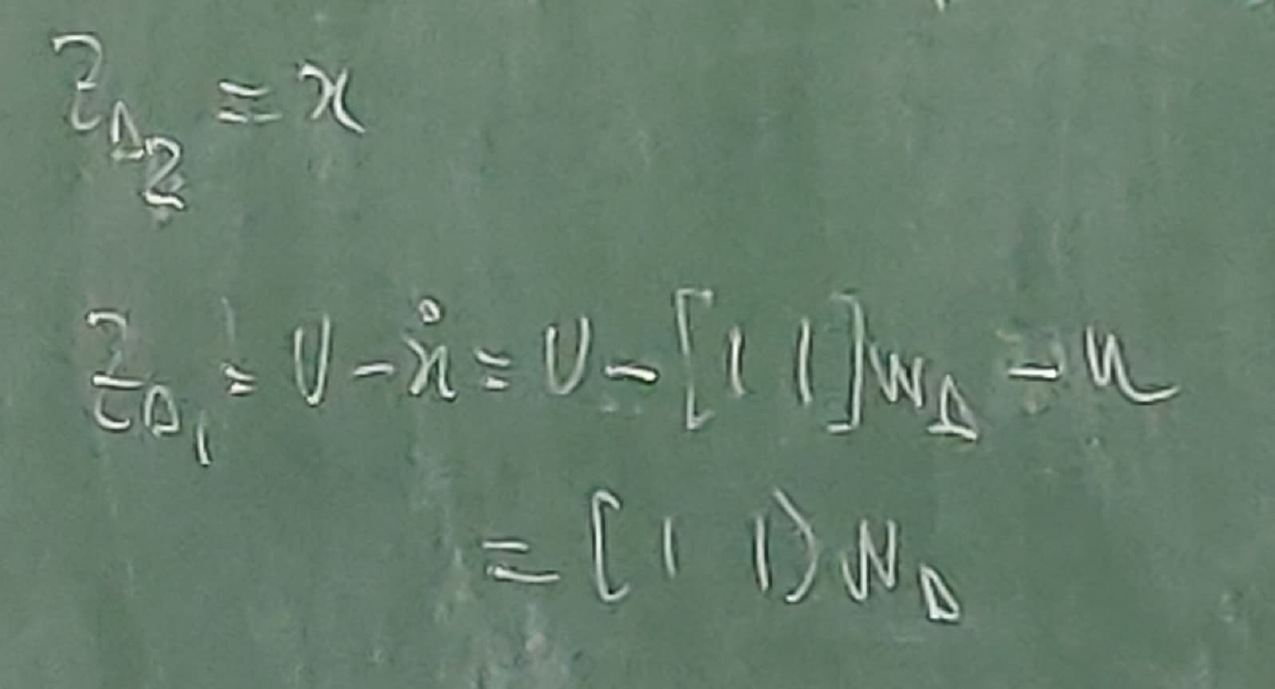 z_{Δ_2} = x
z_{Δ_1} = u - ẋ = u - [1 1] w_Δ - u
= [1 1) w_Δ